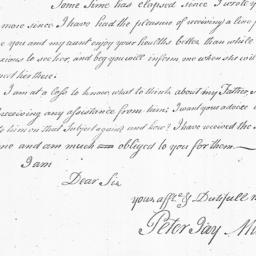 Some time has elapsed since I wrote y
more since I have had the pleasure of receiving a line f
e you and my aunt enjoy your healths better than while
xious to see her, and beg you will inform me when she will
meet her there.
I am at a loss to know, what to think about my Father,
receiving any assistance from him; I want your advice
to him on that Subject again? and how? I have received the
me and am much obliged to you for them—
I am
Dear Sir
your affte. & Dutifull n
Peter Jay Mu